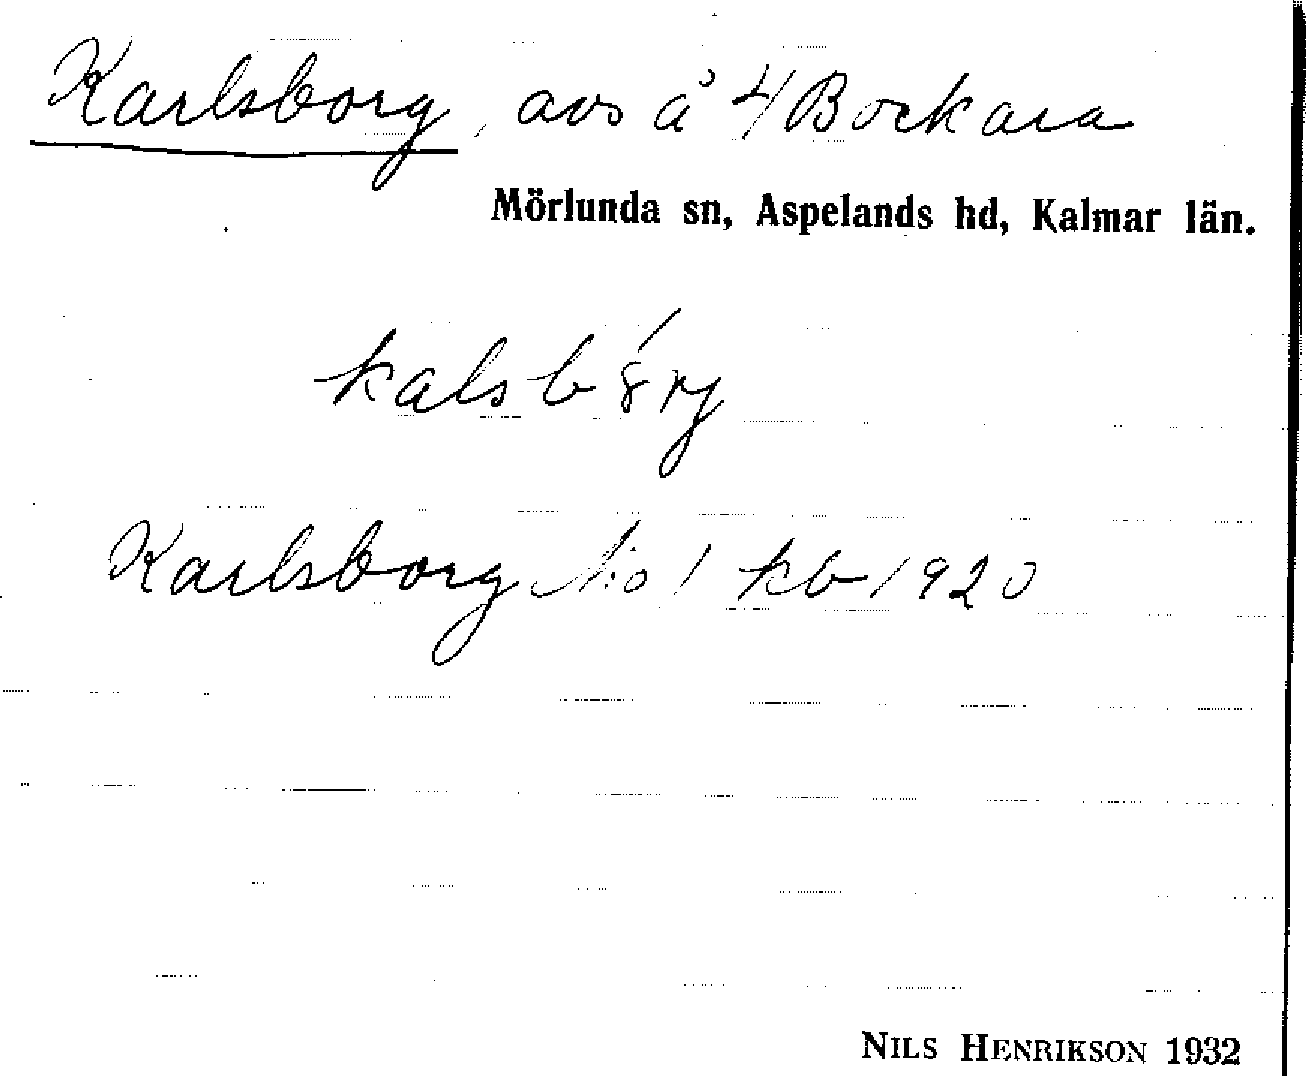 Karlsborg, avs å 4/ Bockara
Mörlunda sn, Aspelands hd, Kalmar län.
Karlsborg No 1 kb 1920
NILS HENRIKSON 1932